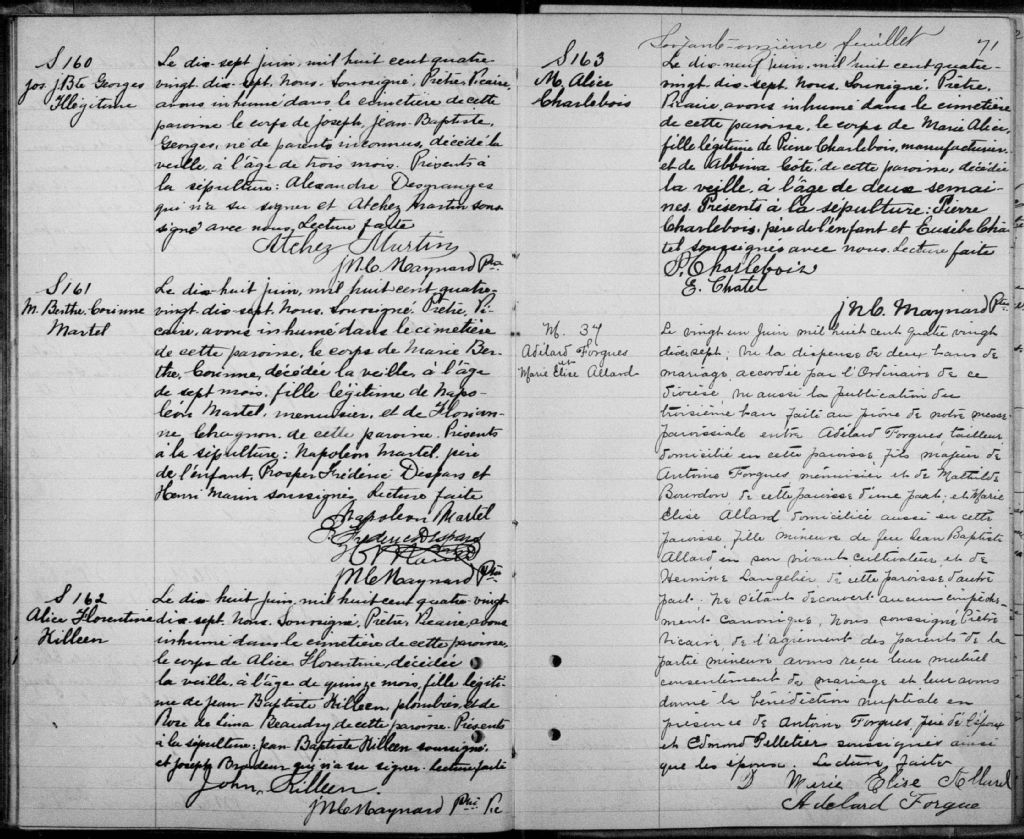 S 160
Jos J.Bte Georges
Illégitime
Le dix-sept juin, mil huit cent quatre
vingt dix-sept. Nous. Soussigné, Prêtre, Vicaire,
avons inhumé dans le cimetière de cette
paroisse le corps de Joseph, Jean-Baptiste,
Georges, né de parents inconnus, décédé la
veille, à l'âge de trois mois. Présents à
la sépulture: Alexandre Desgranges
qui n'a su signer et Atchez Martin sous
signé avec nous, Lecture faite
Atchez Martin
J M C Maynard Ptre
S 161
M. Berthe. Corinne
Martel
Le dix-huit juin, mil huit cent quatre-
vingt-dix-sept. Nous. Soussigné. Prêtre, Vi-
caire, avons inhumé dans le cimetière
de cette paroisse, le corps de Marie Ber-
the, Corinne, décédée la veille, à l'âge
de sept mois, fille légitime de Napo-
léon Martel, menuisier, et de Florian-
ne Chagnon, de cette paroisse. Présents
à la sépulture: Napoléon Martel, père
de l'enfant, Prosper Frédéric Despars et
Henri Marin soussignés, Lecture faite
Napoleon Martel
J M C Maynard Ptre
S 162
Alice Florentine
Killeen
Le dix-huit juin, mil huit cent quatre-vingt
dix-sept. Nous. Soussigné, Prêtre, Vicaire, avons
inhumé dans le cimetière de cette paroisse,
le corps de Alice Florentine, décédée
la veille, à l'âge de quinze mois, fille légiti-
me de Jean Baptiste Killeen, plombier, et de
Rose de Lima Beaudry, de cette paroisse. Présents
à la sépulture: Jean Baptiste Killeen soussigné,
et Joseph Brodeur qui n'a su signer. Lecture faite
John Killeen.
J M C Maynard Ptre Vic
Soixante-onzième feuillet 71
S 163
M. Alice
Charlebois
Le dix-neuf juin, mil huit cent quatre-
vingt-dix-sept. Nous. Soussigné, Prêtre,
Vicaire, avons inhumé dans le cimetière
de cette paroisse, le corps de Marie Alice,
fille légitime de Pierre Charlebois, manufacturier,
et de Albina Côté, de cette paroisse, décédée
la veille, à l'âge de deux semai-
nes. Présents à la sépulture: Pierre
Charlebois, père de l'enfant et Eusèbe Cha
tel soussignés avec nous. Lecture faite
P. Charlebois
E. Chatel
J M C Maynard Ptre
M. 34
Adélard Forgues
et
Marie Elise Allard
Le vingt un Juin mil huit cent quatre vingt
dix sept; vu la dispense de deux bans de
mariage accordée par l'Ordinaire de ce
diocèse, vu aussi la publication du
troisième ban faite au prône de notre messe
paroissiale entre Adélard Forgues, tailleur
domicilié en cette paroisse fils majeur de
Antoine Forgues, menuisier et de Mathilde
Bourdon de cette paroisse d'une part; et Marie
Elise Allard domiciliée aussi en cette
paroisse, fille mineure de feu Jean Baptiste
Allard en son vivant cultivateur et de
Hermine Langelier de cette paroisse d'autre
part: Ne s'étant découvert aucun empêche-
ment canonique, Nous soussigné, Prêtre
Vicaire, de l'agrément des parents de la
partie mineure avons reçu leur mutuel
consentement de mariage et leur avons
donné la bénédiction nuptiale en
présence de Antoine Forgues, père de l'époux
et Edmond Pelletier soussignés aussi
que les époux. Lecture faite
Merie Elise Allard
Adelard Forgue